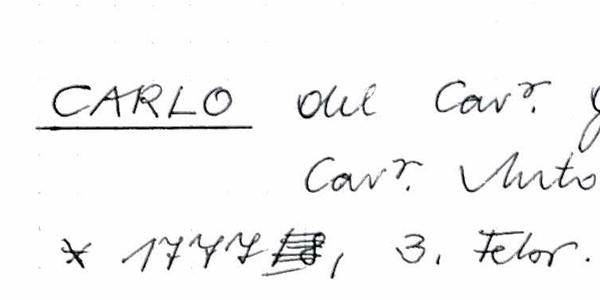 CARLO del Cav.r
Cav.r Anto
* 1777, 3. Febr.